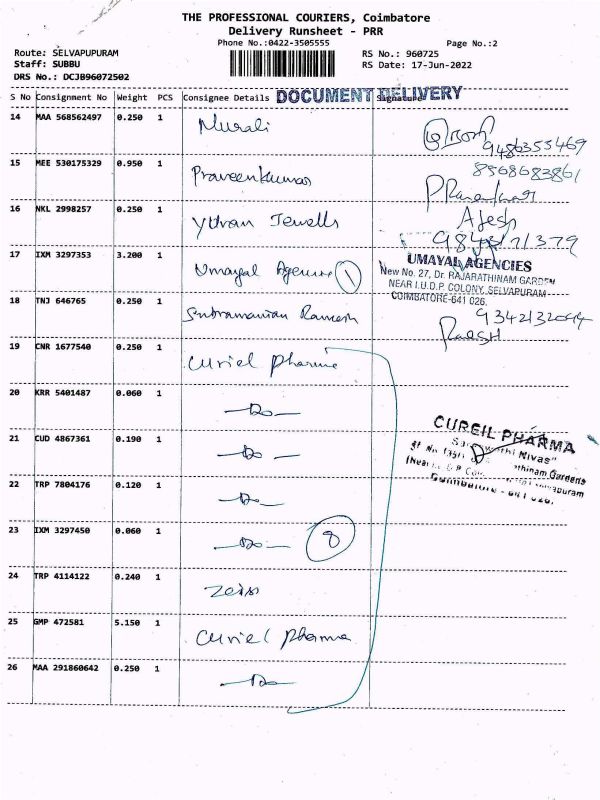 THE PROFESSIONAL COURIERS, Coimbatore
Delivery Runsheet - PRR
Phone No.:0422-3505555
Page No.:2
Route: SELVAPUPURAM
RS No.: 960725
Staff: SUBBU
RS Date: 17-Jun-2022
DRS No.: DCJB96072502
S No Consignment No Weight PCS Consignee Details Signature
DOCUMENT DELIVERY
14 MAA 568562497 0.250 1 Murali
9486355469
15 MEE 530175329 0.950 1 Praveenkumar
8568683861
16 NKL 2998257 0.250 1 Yuvan Jewells
17 IXM 3297353 3.200 1 Umayal Agencies 1
UMAYAL AGENCIES
New No. 27, Dr. RAJARATHINAM GARDEN
NEAR I.U.D.P. COLONY, SELVAPURAM
COIMBATORE-641 026.
18 TNJ 646765 0.250 1 Subramanian Ramesh
19 CNR 1677540 0.250 1 Curiel Pharma
20 KRR 5401487 0.060 1 -Do-
21 CUD 4867361 0.190 1 -Do-
22 TRP 7804176 0.120 1 -Do-
23 IXM 3297450 0.060 1 -Do- 8
24 TRP 4114122 0.240 1 Zeiss
25 GMP 472581 5.150 1 Curiel Pharma
26 MAA 291860642 0.250 1 -Do-
CUREIL PHARMA
Nivas"